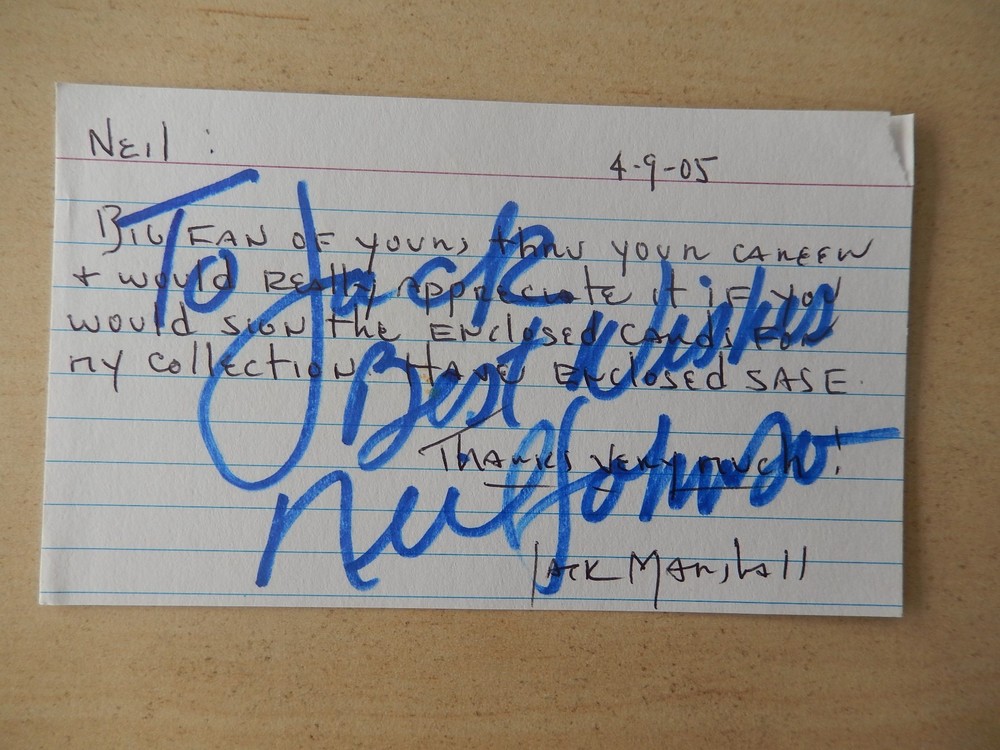 Neil :
4-9-05
Big fan of yours thru your career
+ would really appreciate it if you
would sign the enclosed cards for
my collection. Have enclosed SASE.
Thanks very much!
Jack Marshall
To Jack
Best Wishes
Neil Johnson